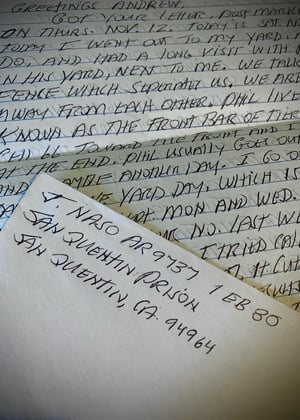 GREETINGS ANDREW.
GOT YOUR LETTER, POST MARK
ON THURS. NOV. 12. TODAY IS SAT. N
TODAY I WENT OUT TO MY YARD,
DO, AND HAD A LONG VISIT WITH
IN HIS YARD, NEXT TO ME. WE TALK
FENCE WHICH SEPERATES US. WE ARE
AWAY FROM EACH OTHER. PHIL LIVE
KNOWN AS THE FRONT BAR OF TIER
TOWARD THE FRONT AND I
AT THE END. PHIL USUALLY GOES OUT
ANOTHER DAY. I GO O
YARD DAY, WHICH IS
MON AND WED.
NO. LAST W
I TRIED CAL
IT CUT
J. NASO AR9737 1 EB 80
SAN QUENTIN PRISON
SAN QUENTIN, CA. 94964